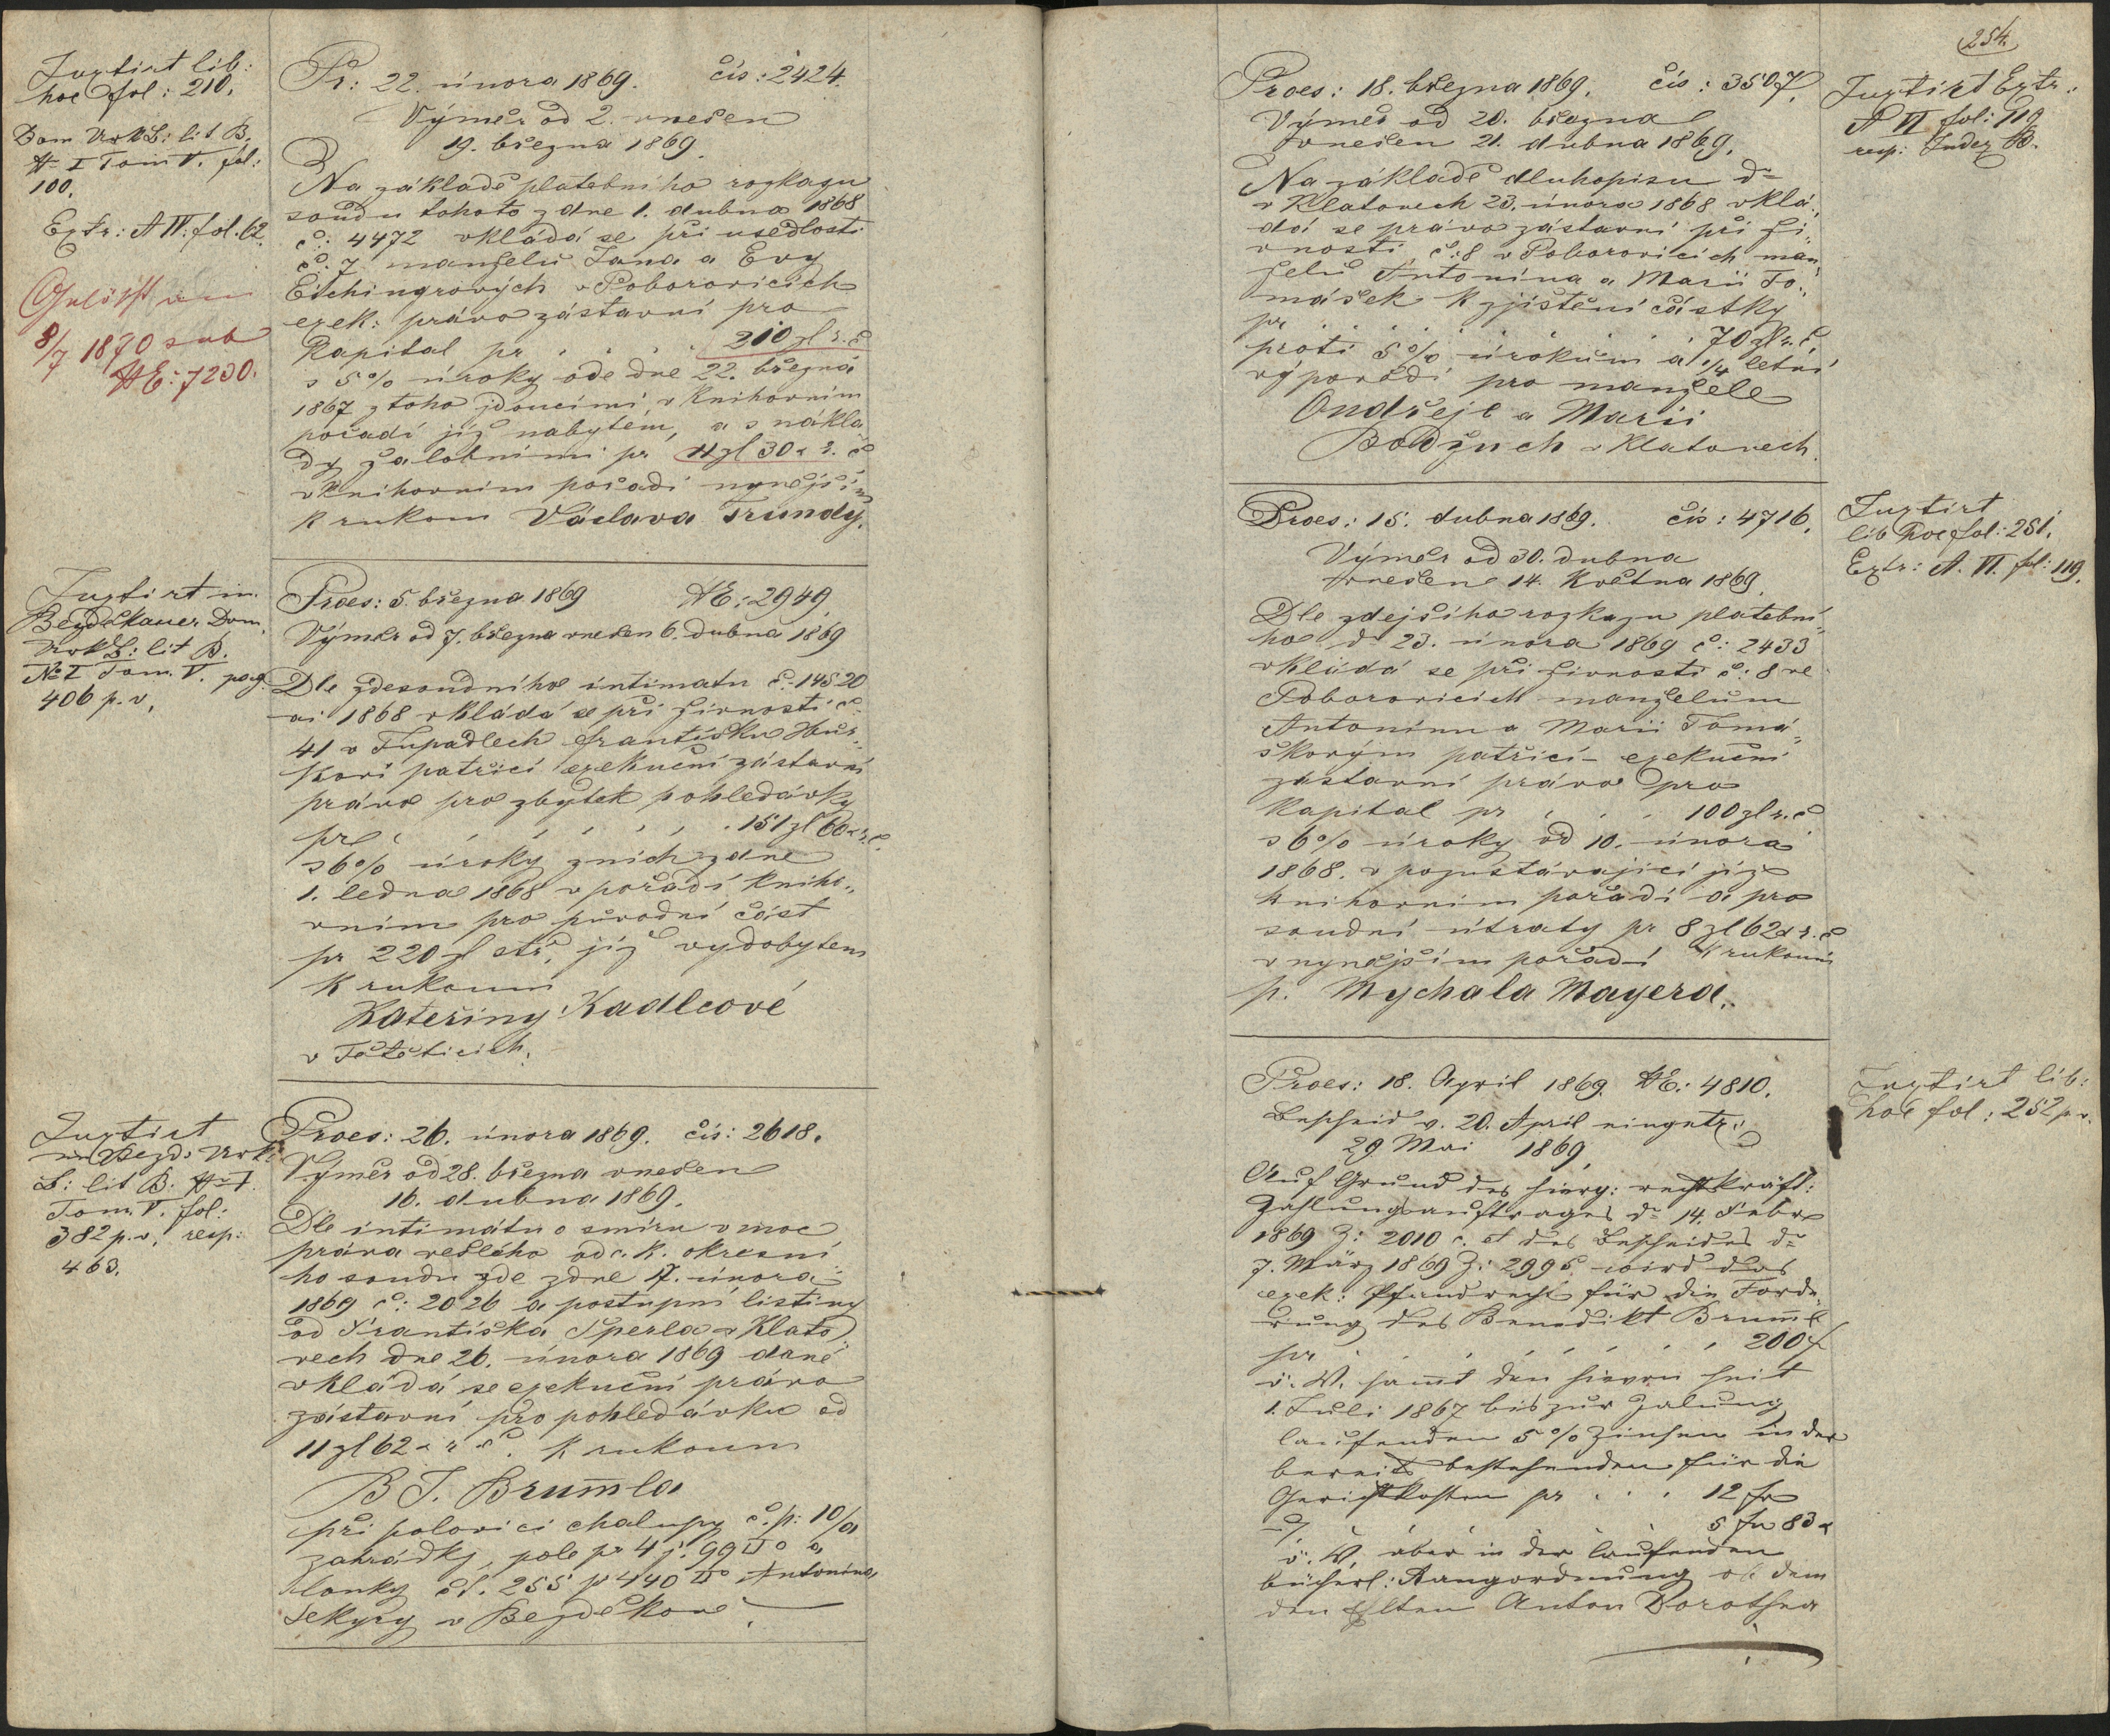 Juxtirt lib:
hoc fol: 210.
Dom UrkB: lit B.
N I Tom V. fol:
100.
Extr: A IV: fol. 62.
Gelöscht am
8/7 1870 sub
NE: 7230.
Pr: 22. února 1869. čís: 2424.
Výměr od 2. vnešen
19. března 1869.
Na základě platebního rozkazu
soudu tohoto z dne 1. dubna 1868
č: 4472 vkládá se při usedlosti
č. 7 manželů Jana a Evy
Eichingrových v Poborovicích
exek: právo zástavní pro
Kapital pr . . . . 210 zl r. č
s 5% úroky ode dne 22. března
1867 z toho jdoucími, v knihovním
pořadí již nabytém, a s nákla
dy žalobními pr 11 zl 30 x r. č
v knihovním pořadí nynějším
k rukoum Václava Trundy.
Juxtirt in
Bezdekauer Dom.
UrkB: lit B.
No I Tom. V. pag.
406 p. v,
Praes: 5. března 1869 NE: 2949.
Výměr od 7. března vnešen 6. dubna 1869
Dle zdesoudního intimatu č: 14520
ai 1868 vkládá se při živnosti č:
41 v Tupadlech Františku Hůr„
kovi patřící exekuční zástavní
právo pro zbytek pohledávky
pr . . . . . . 151 zl 60 x r. č.
s 6% úroky z nich z dne
1. ledna 1868 v pořadí kniho„
vním pro původní část
pr 220 zl stř. již vydobytem
k rukoum
Kateřiny Kadlcové
v Těťeticích.
Juxtirt
in Bezd: Urk.
B: lit B. N I.
Tom. V. fol:
382 p. v. resp:
463.
Praes: 26. února 1869. čís: 2618.
Výměr od 28. března vnešen
16. dubna 1869.
Dle intimátu o smíru v moc
práva vešlého od c. k. okresní
ho soudu zde z dne 17. února
1869 č: 2026 a postupní listiny
od Františka Šperla v Klato„
vech dne 26. února 1869 dané
vkládá se exekuční právo
zástavní pro pohledávku od
11 zl 62 x r č. k rukoum
B J. Brumla
při polovici chalupy č. p: 10/a
zahrádky, pole pr 4 j. 99 □° a
louky čt. 255 pr 440 □° Antonína
Sekyry v Bezděkově.
254.
Praes: 18. března 1869. čís: 3507.
Výměr od 20. března
vnešen 21. dubna 1869.
Na základě dluhopisu dto
v Klatovech 23. února 1868 vklá„
dá se právo zástavní při ži„
vnosti č: 8 v Poborovicích man„
želů Antonína a Marii To„
mášek k zjištění částky
pr . . . . . . . 70 zl r. č.
proti 5% úrokům a 1/4 letní
výpovědi pro manžele
Ondřeje a Marii
Bodžuch v Klatovech.
Juxtirt Extr.:
A VI fol: 119
resp: Index B.
Praes: 15. dubna 1869. čís: 4716.
Výměr od 30. dubna
vnešene 14. května 1869.
Dle zdejšího rozkazu platební„
ho dto 23. února 1869 č: 2433
vkládá se při živnosti č: 8 ve
Poborovicích manželům
Antonínu a Marii Tomá„
škovým patřící exekuční
zástavní právo pro
Kapital pr . . . 100 zl r. č
s 6% úroky od 10. února
1868. v pozustávající již
knihovním pořadí a pro
soudní útraty pr 8 zl 62 x r. č
v nynějším pořadí k rukoum
p. Mychala Mayera.
Juxtirt
lib hoc fol: 251.
Extr: A. VI. fol: 119.
Praes: 18. April 1869. NE: 4810.
Bescheid v. 20. April eingetr.:
29 Mai 1869.
Auf Grund des hierg: rechtskräft:
Zahlungsauftrages dto 14. Febr
1869 Z: 2010 c. et des Bescheides dto
7. März 1869 Z: 2995 wird das
exek: Pfandrecht für die Forde„
rung des Benedikt Brumml
pr . . . . . . . 200 f
ö. W. sammt den hievon seit
1. Juli 1867 bis zur Zalung
laufenden 5% Zinsen in der
bereits bestehenden für die
Gerichtskosten pr . . . 12 fr
5 fr 83 x
ö. W. aber in der laufenden
bücherl: Rangordnung ob dem
den Ehlten Anton Dorothea
Juxtirt lib:
hoc fol: 252 p. v.